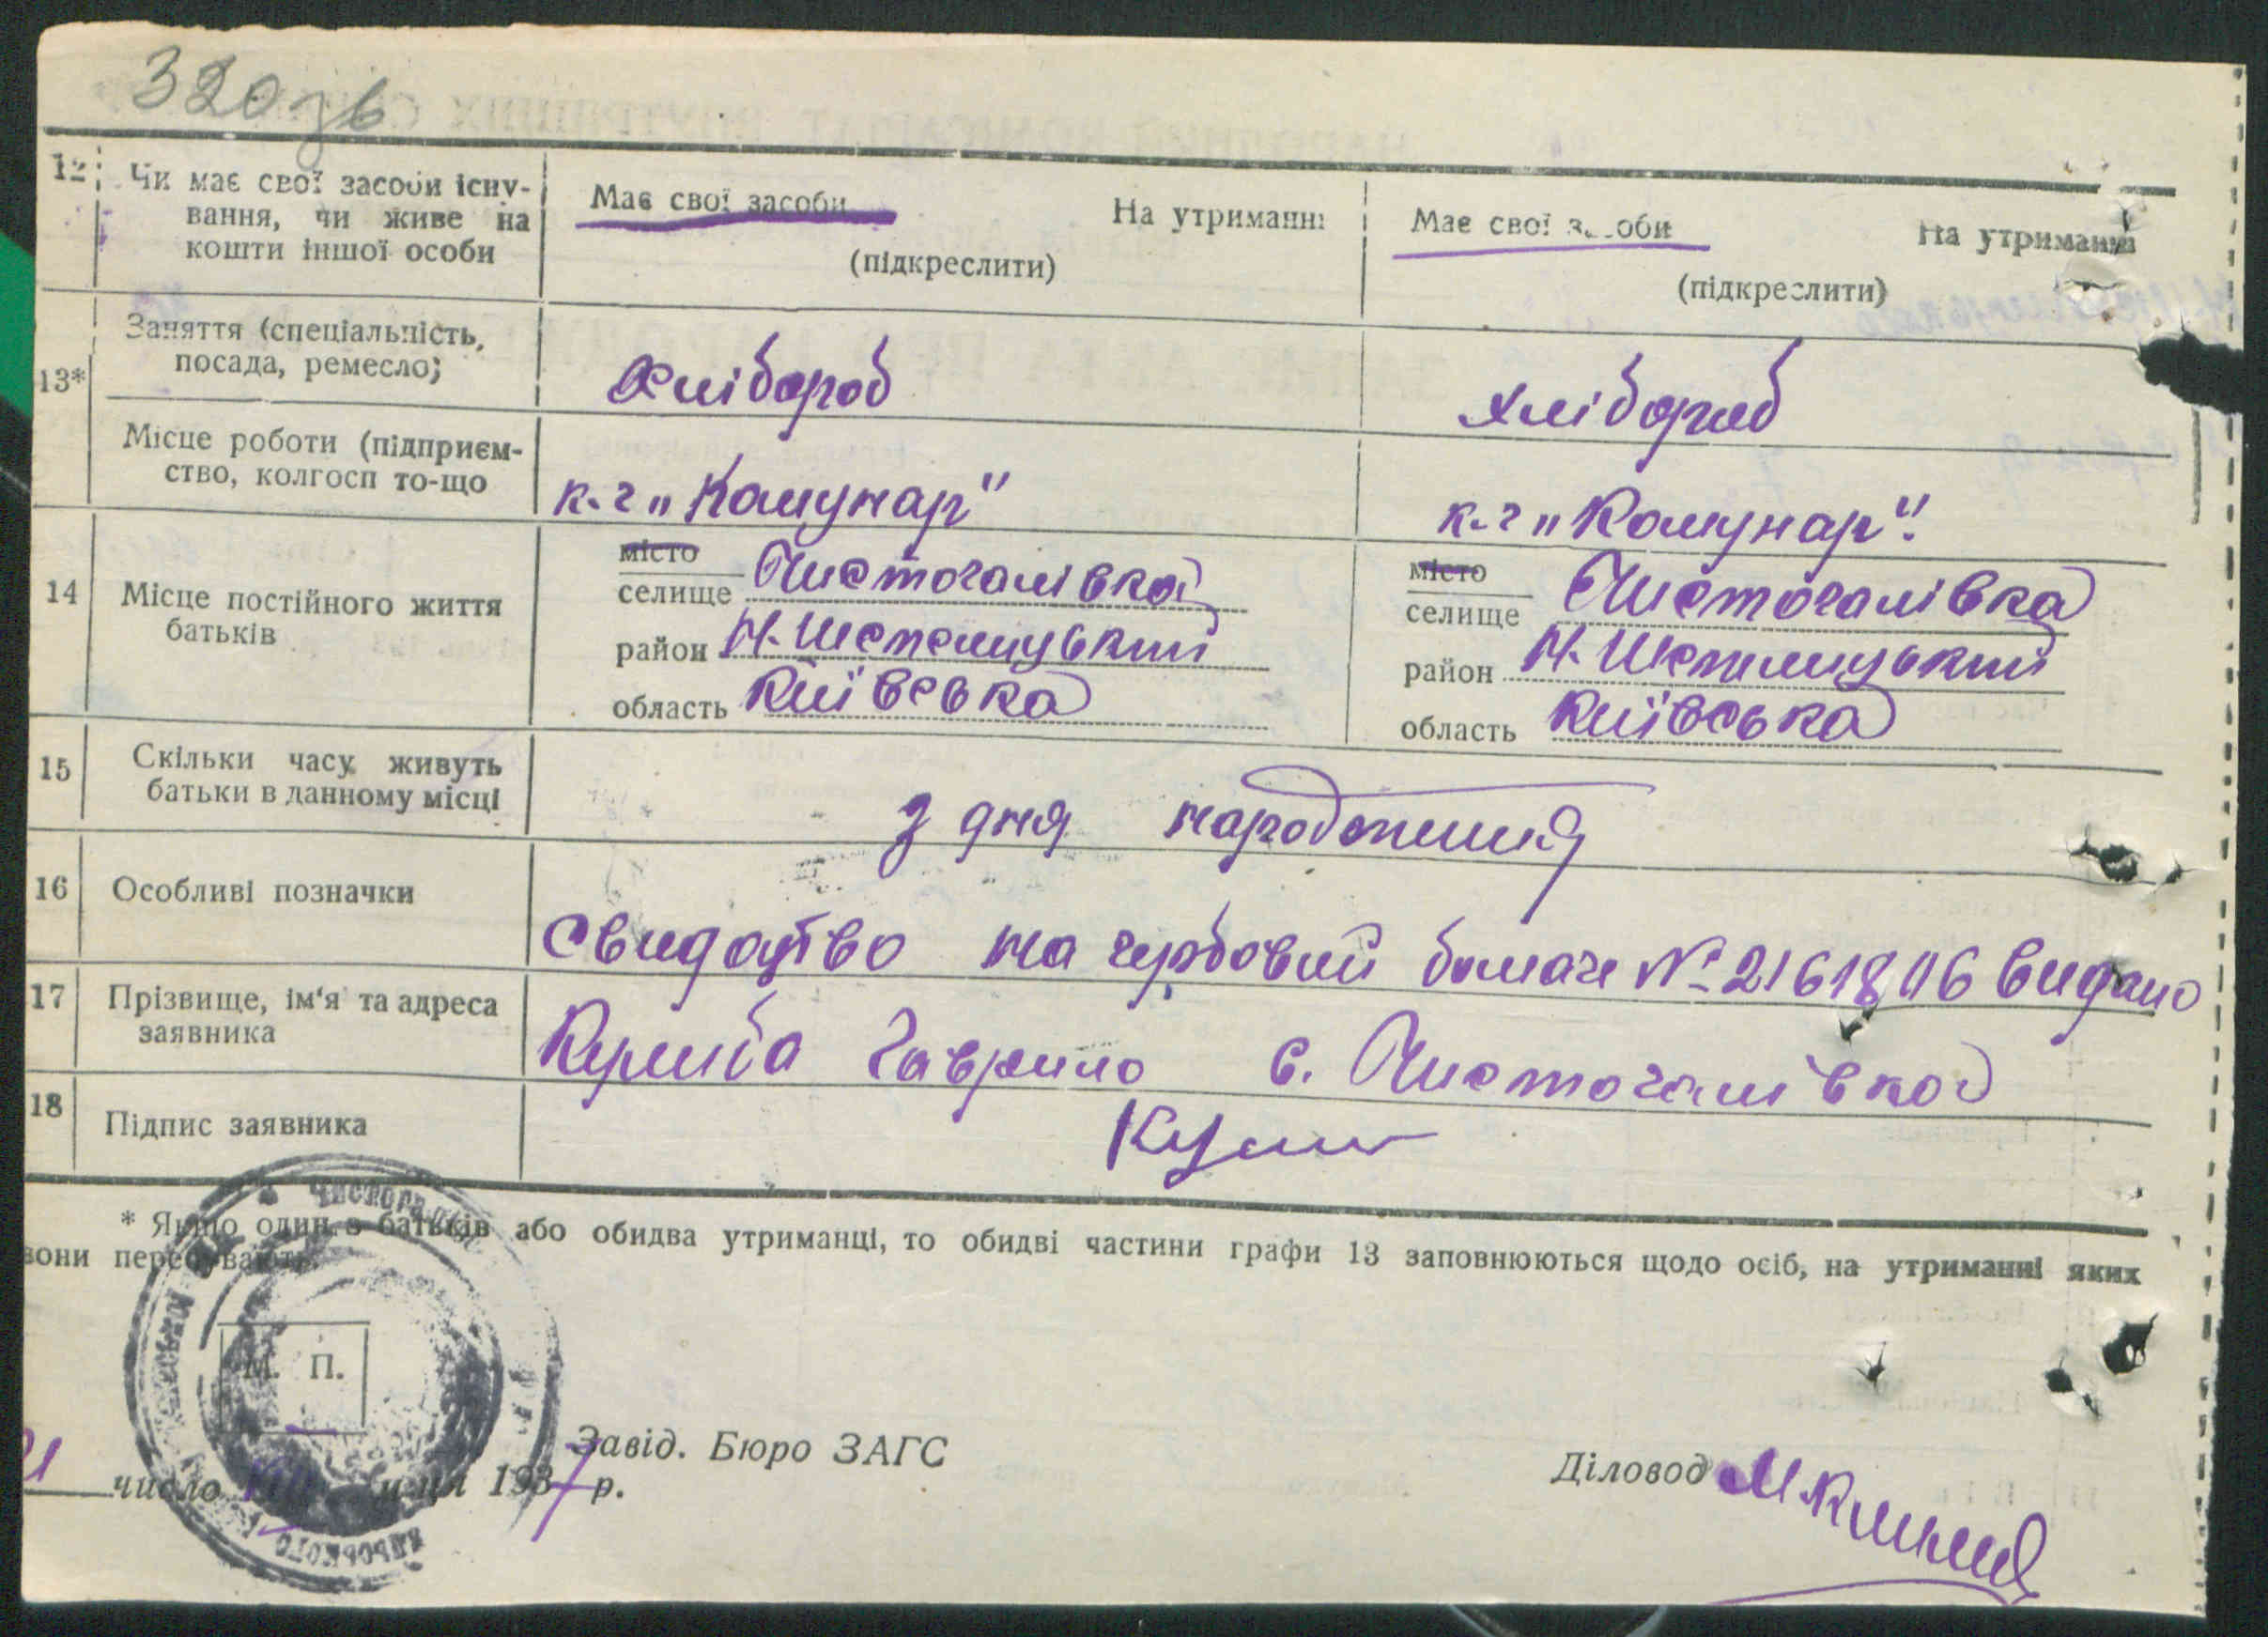 320зв
12 Чи має свої засоби існу-
вання, чи живе на
кошти іншої особи
Має свої засоби На утриманні
(підкреслити)
Має свої засоби На утриманні
(підкреслити)
13*
Заняття (спеціальність,
посада, ремесло)
Хлібороб
хлібороб
Місце роботи (підприєм-
ство, колгосп то-що
к.г „Комунар"
к.г „Комунар".
14 Місце постійного життя
батьків
місто
селище Чистогалівка
район Н. Шепелицький
область Київська
місто
селище Чистогалівка
район Н. Шепелицький
область Київська
15 Скільки часу живуть
батьки в данному місці
З дня народження
16 Особливі позначки
Свидоцтво на гербовий бомаге № 2161806 видано
17 Прізвище, ім'я та адреса
заявника
Кулиба Гаврило с. Чистогалівка
18 Підпис заявника
* Якщо один з батьків або обидва утриманці, то обидві частини графи 13 заповнюються щодо осіб, на утриманні яких
вони перебувають.
М. П.
число 1937 р.
Завід. Бюро ЗАГС
Діловод